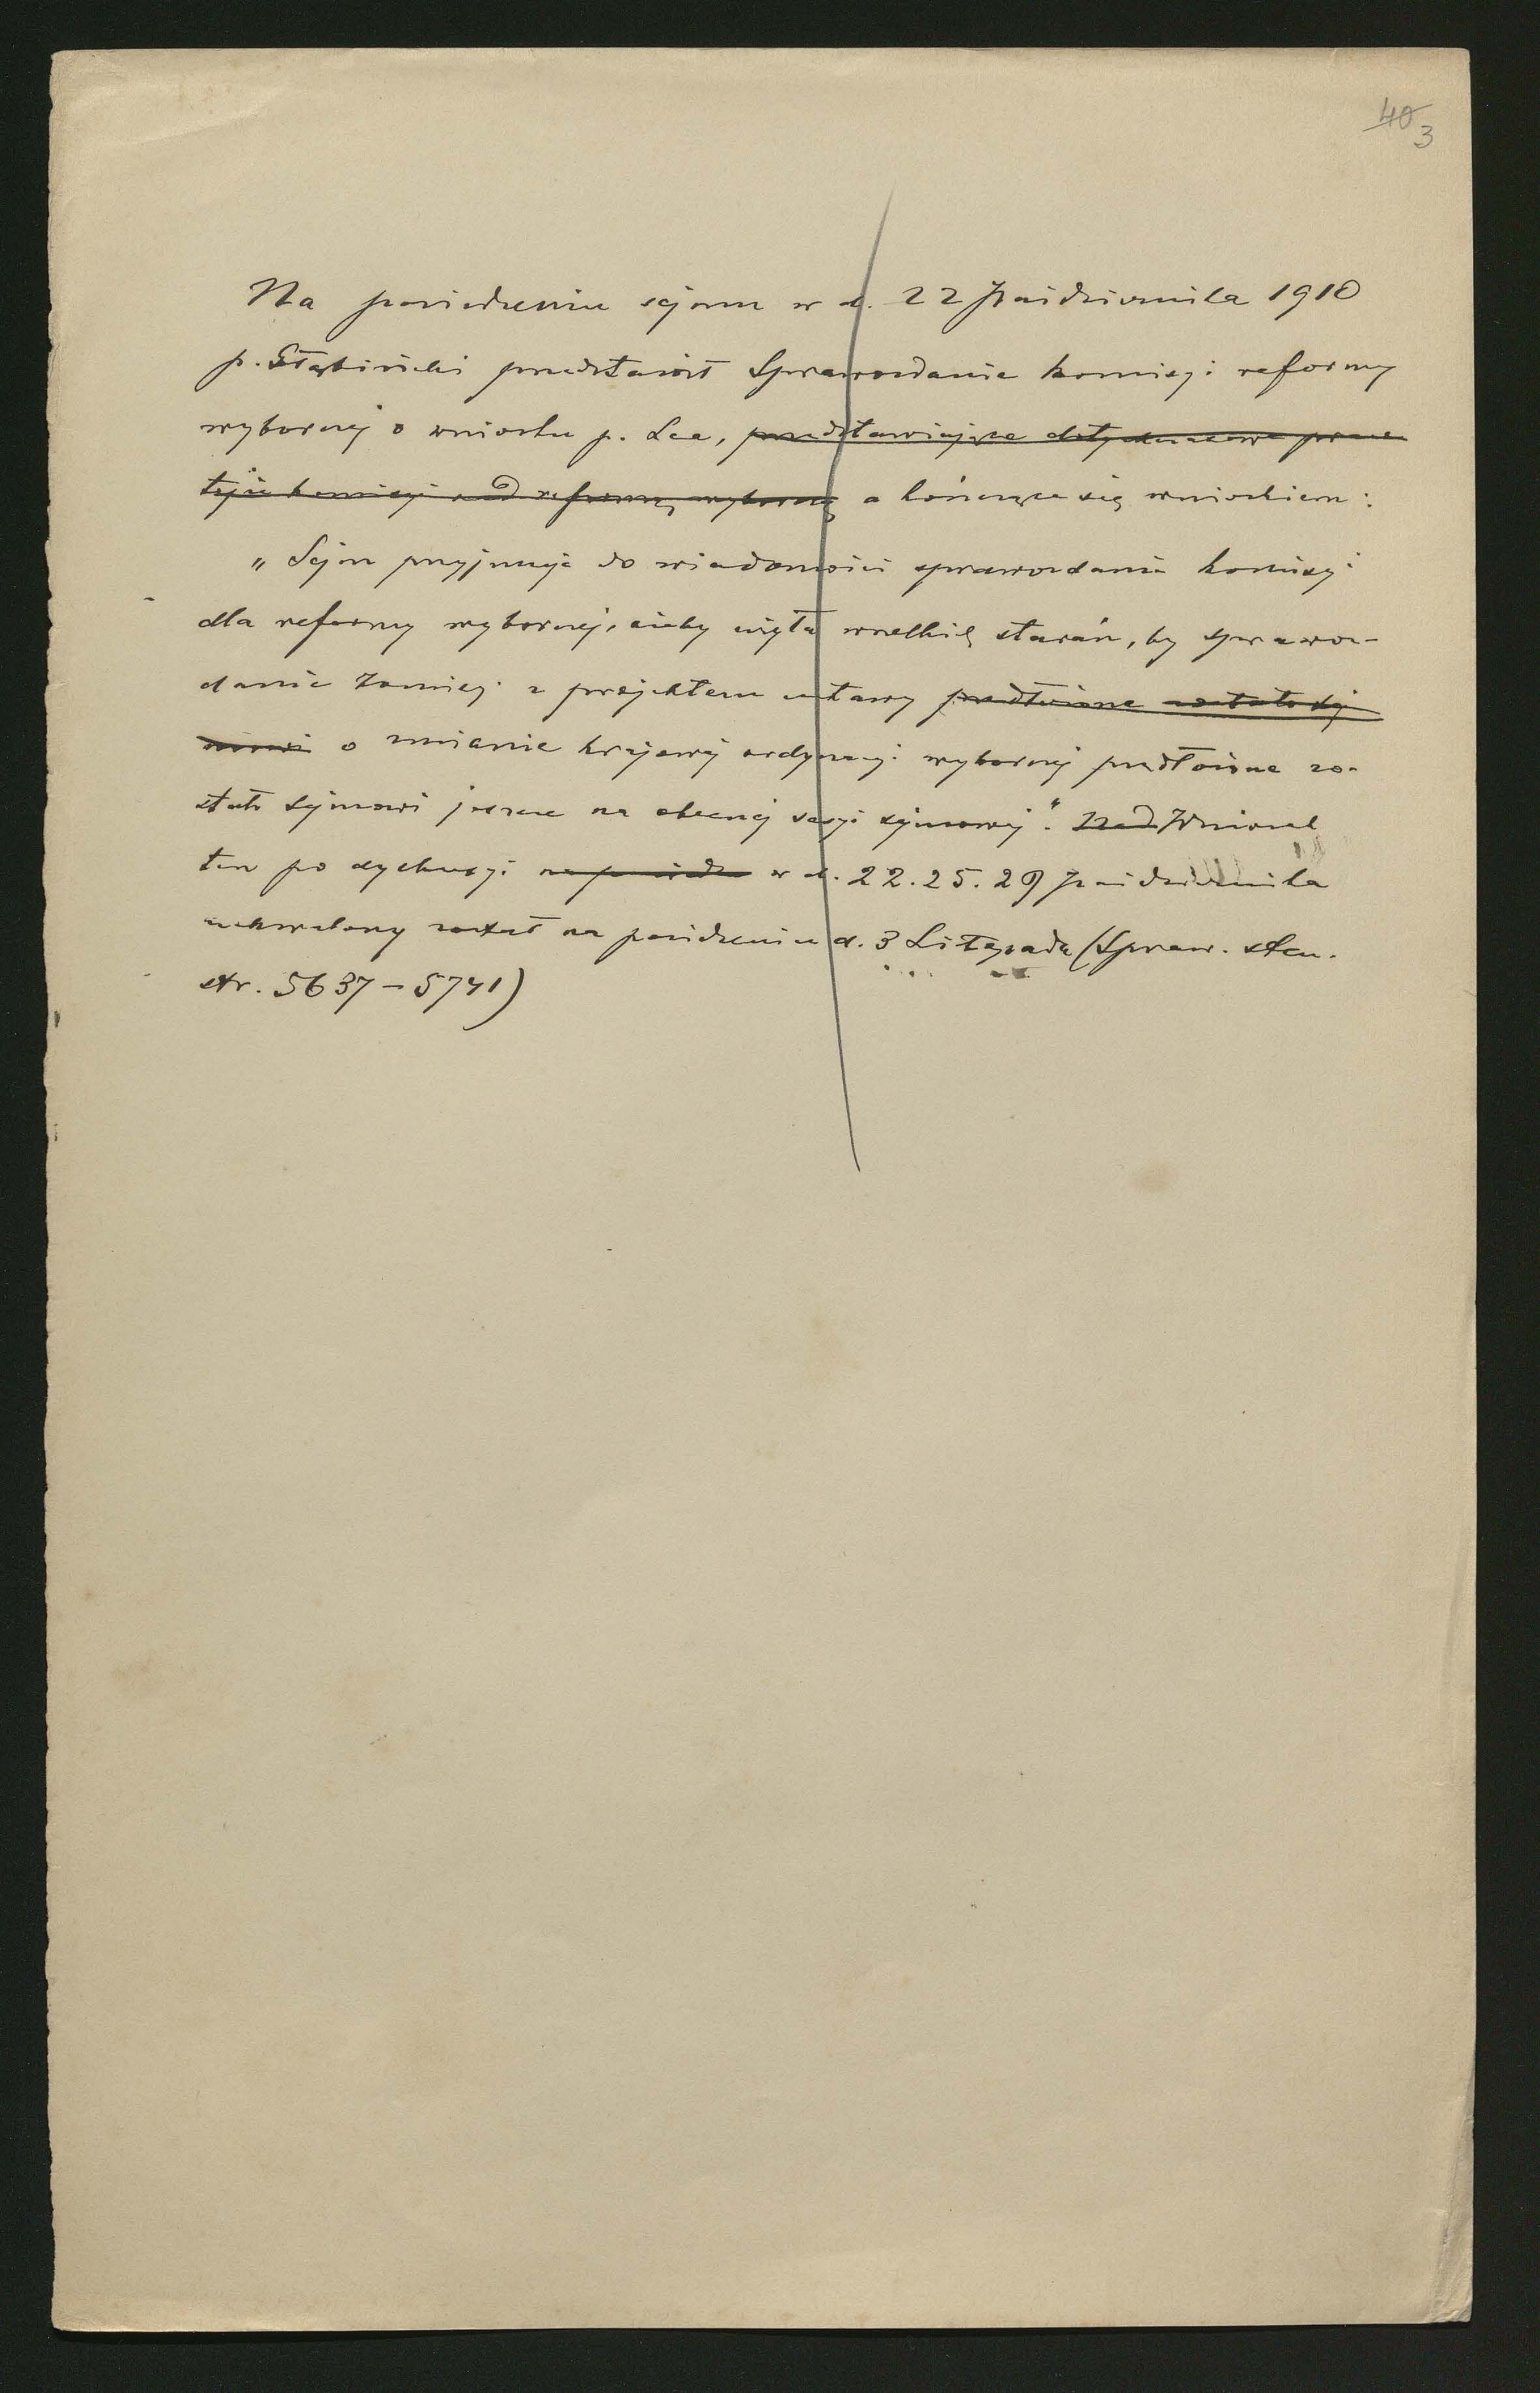 40 3
Na posiedzeniu sejmu w d. 22 Października 1910
p. Głąbiński przedstawił Sprawozdanie komisyi reformy
wyborczej o wniosku p. Lea, przedstawiające dotychczasowe prace
tejże komisyi nad reformą wyborczą a kończące się wnioskiem:
„Sejm przyjmuje do wiadomości sprawozdanie komisyi
dla reformy wyborczej, ażeby użyła wszelkich starań, by sprawoz-
danie komisyi z projektem ustawy przedłożone zostało sej
mowi o zmianie krajowej ordynacyi wyborczej przedłożone zo-
stało sejmowi jeszcze na obecnej sesyi sejmowej". Nad Wniosek
ten po dyskusyi na posiedz w d. 22. 25. 29 Października
uchwalony został na posiedzeniu d. 3 Listopada (Spraw. sten.
str. 5637 – 5741)